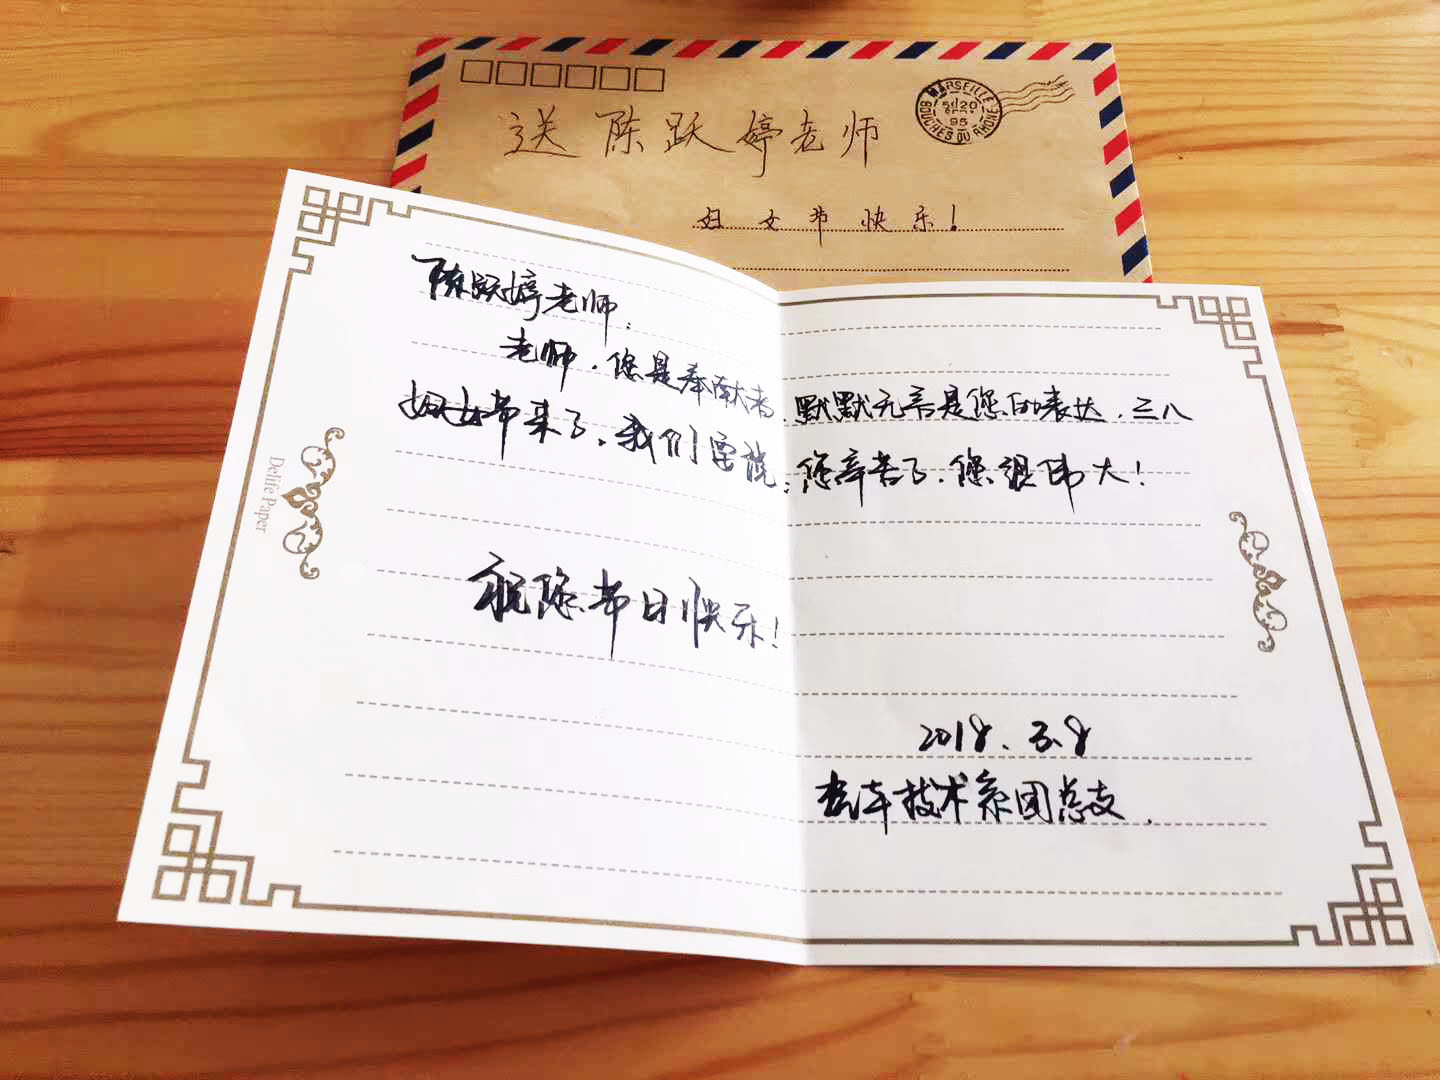 MARSEILLE
BOUCHES DU RHONE
95
送陈跃婷老师
妇女节快乐!
陈跃婷老师:
老师,您是奉献者,默默无言是您的表达,三八
妇女节来了,我们要说:您辛苦了,您很伟大!
祝您节日快乐!
2018.3.8
汽车技术系团总支.
Delife Paper